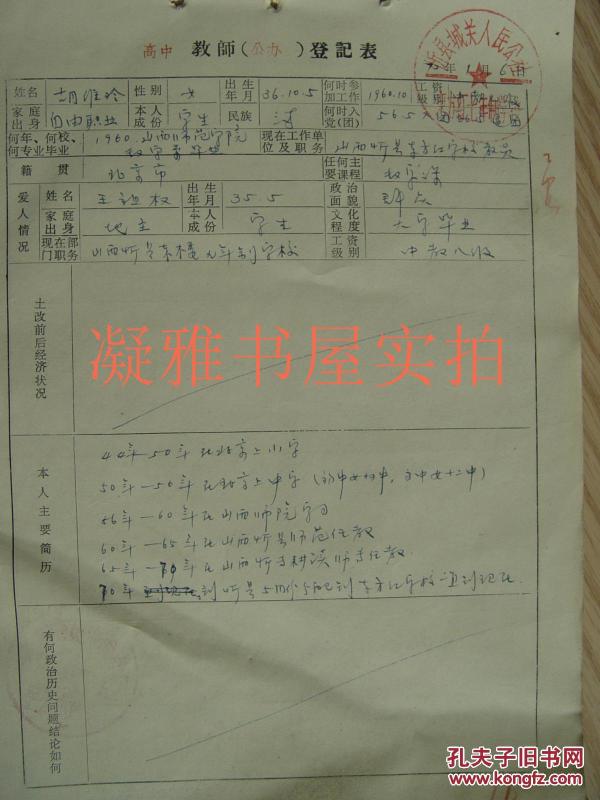 高中 教師（公办）登記表
年 1 月 6 日
姓名 胡维玲 性别 女 出生年月 36.10.5 何时参加工作 1960.10 工资级别
家庭出身 自由职业 本人成份 学生 民族 汉 何时入党(团) 56.5
何年、何校、何专业毕业 1960 山西师范学院数学系毕业 现在工作单位及职务 山西忻县东方红学校教员
籍贯 北京市 任何主要课程 数学
爱人情况
姓名 王 权 出生年月 35.5 政治面貌 群众
家庭出身 地主 本人成份 学生 文化程度 大学毕业
现在部门职务 山西忻县 九年制学校 工资级别 中教八级
土改前后经济状况
凝雅书屋实拍
本人主要简历
44年-50年在北京上小学
50年-56年在北京上中学（初中女 中，高中女十二中）
56年-60年在山西师院学习
60年-65年在山西忻县师范任教
65年-70年在山西忻县耕读师专任教.
70年 到忻县 东方红学校一直到现在
有何政治历史问题结论如何
孔夫子旧书网
www.kongfz.com